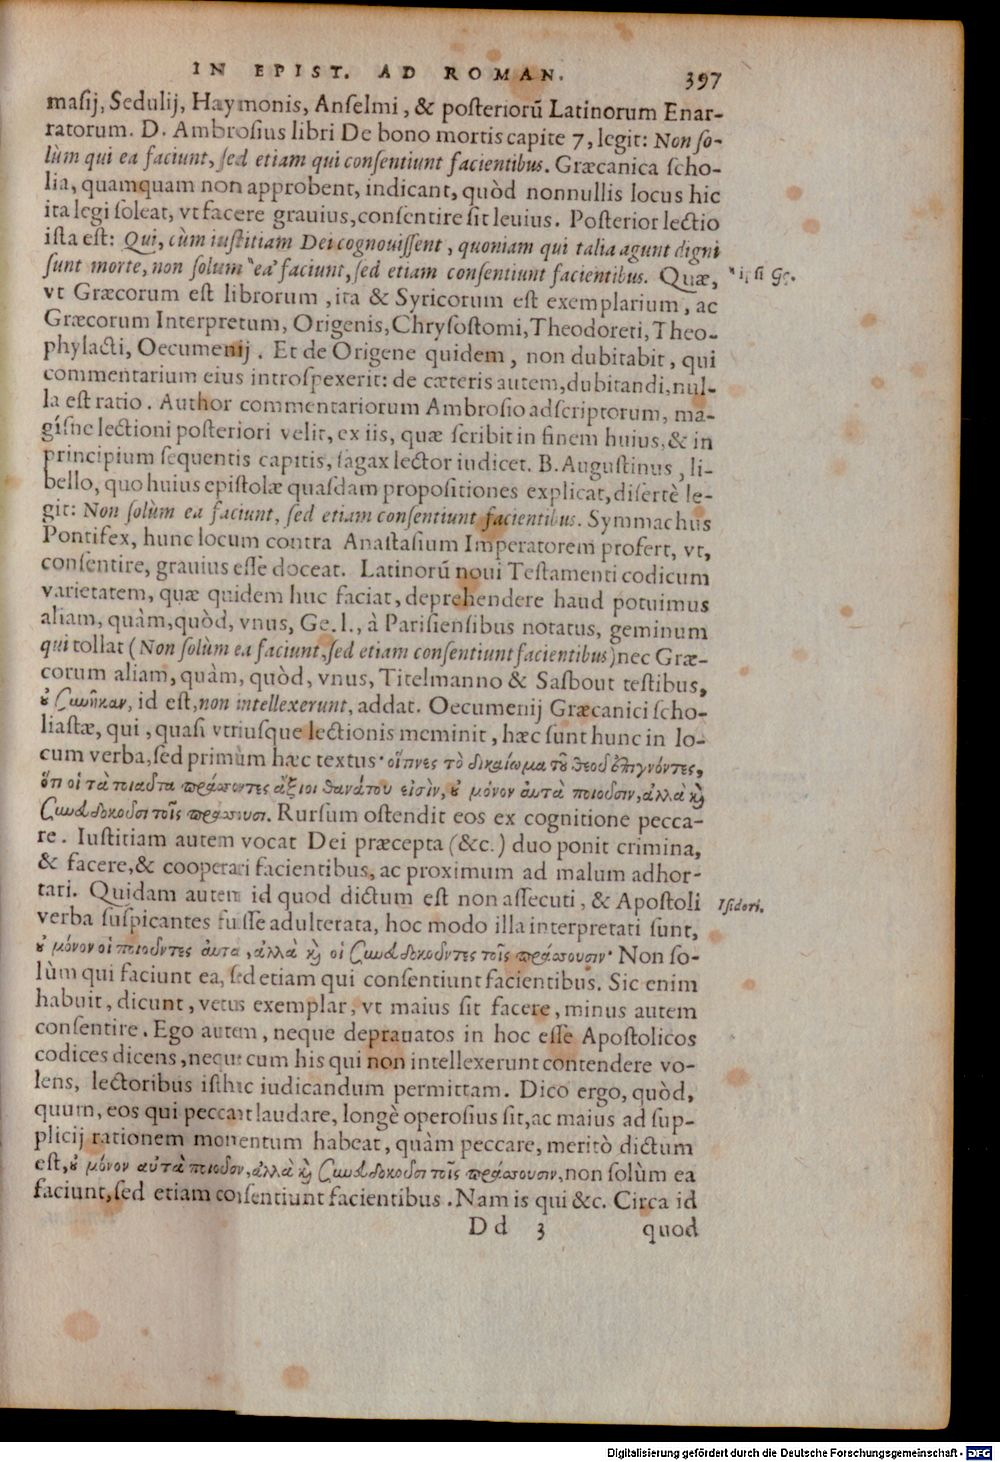 IN EPIST. AD ROMAN. 397
masij, Sedulij, Haymonis, Anselmi, & posteriorū Latinorum Enar-
ratorum. D. Ambrosius libri De bono mortis capite 7, legit: Non so-
lùm qui ea faciunt, sed etiam qui consentiunt facientibus. Græcanica scho-
lia, quamquam non approbent, indicant, quòd nonnullis locus hic
ita legi soleat, vt facere grauius, consentire sit leuius. Posterior lectio
ista est: Qui, cùm iustitiam Dei cognouissent, quoniam qui talia agunt digni
sunt morte, non solum ea faciunt, sed etiam consentiunt facientibus. Quæ,
i, si Gr.
vt Græcorum est librorum, ita & Syricorum est exemplarium, ac
Græcorum Interpretum, Origenis, Chrysostomi, Theodoreti, Theo-
phylacti, Oecumenij. Et de Origene quidem, non dubitabit, qui
commentarium eius introspexerit: de cæteris autem, dubitandi, nul-
la est ratio. Author commentariorum Ambrosio adscriptorum, ma-
gísne lectioni posteriori velit, ex iis, quæ scribit in finem huius, & in
principium sequentis capitis, sagax lector iudicet. B. Augustinus, li-
bello, quo huius epistolæ quasdam propositiones explicat, disertè le-
git: Non solùm ea faciunt, sed etiam consentiunt facientibus. Symmachus
Pontifex, hunc locum contra Anastasium Imperatorem profert, vt,
consentire, grauius esse doceat. Latinorū noui Testamenti codicum
varietatem, quæ quidem huc faciat, deprehendere haud potuimus
aliam, quàm, quòd, vnus, Ge. l., à Parisiensibus notatus, geminum
qui tollat (Non solùm ea faciunt, sed etiam consentiunt facientibus) nec Græ-
corum aliam, quàm, quòd, vnus, Titelmanno & Sasbout testibus,
ȣ ζωῆκαν, id est, non intellexerunt, addat. Oecumenij Græcanici scho-
liastæ, qui, quasi vtriusque lectionis meminit, hæc sunt hunc in lo-
cum verba, sed primùm hæc textus· οἵτινες τὸ δικαίωμα τοῦ θεοῦ ἐπιγνόντες,
ὅτι οἱ τὰ τοιαῦτα πράσσοντες ἄξιοι θανάτου εἰσὶν, ȣ μόνον αὐτὰ ποιοῦσιν, ἀλλὰ κὶ
συνευδοκοῦσι τοῖς πράσσουσι. Rursum ostendit eos ex cognitione pecca-
re. Iustitiam autem vocat Dei præcepta (&c.) duo ponit crimina,
& facere, & cooperari facientibus, ac proximum ad malum adhor-
tari. Quidam autem id quod dictum est non assecuti, & Apostoli
Isidori.
verba suspicantes fuisse adulterata, hoc modo illa interpretati sunt,
ȣ μόνον οἱ ποιοῦντες αὐτὰ, ἀλλὰ κὶ οἱ συνευδοκοῦντες τοῖς πράσσουσιν· Non so-
lùm qui faciunt ea, sed etiam qui consentiunt facientibus. Sic enim
habuit, dicunt, vetus exemplar, vt maius sit facere, minus autem
consentire. Ego autem, neque deprauatos in hoc esse Apostolicos
codices dicens, neque cum his qui non intellexerunt contendere vo-
lens, lectoribus isthuc iudicandum permittam. Dico ergo, quòd,
quum, eos qui peccant laudare, longè operosius sit, ac maius ad sup-
plicij rationem momentum habeat, quàm peccare, meritò dictum
est, ȣ μόνον αὐτὰ ποιοῦσιν, ἀλλὰ κὶ συνευδοκοῦσι τοῖς πράσσουσιν, non solùm ea
faciunt, sed etiam consentiunt facientibus. Nam is qui &c. Circa id
Dd 3 quod
Digitalisierung gefördert durch die Deutsche Forschungsgemeinschaft - DFG